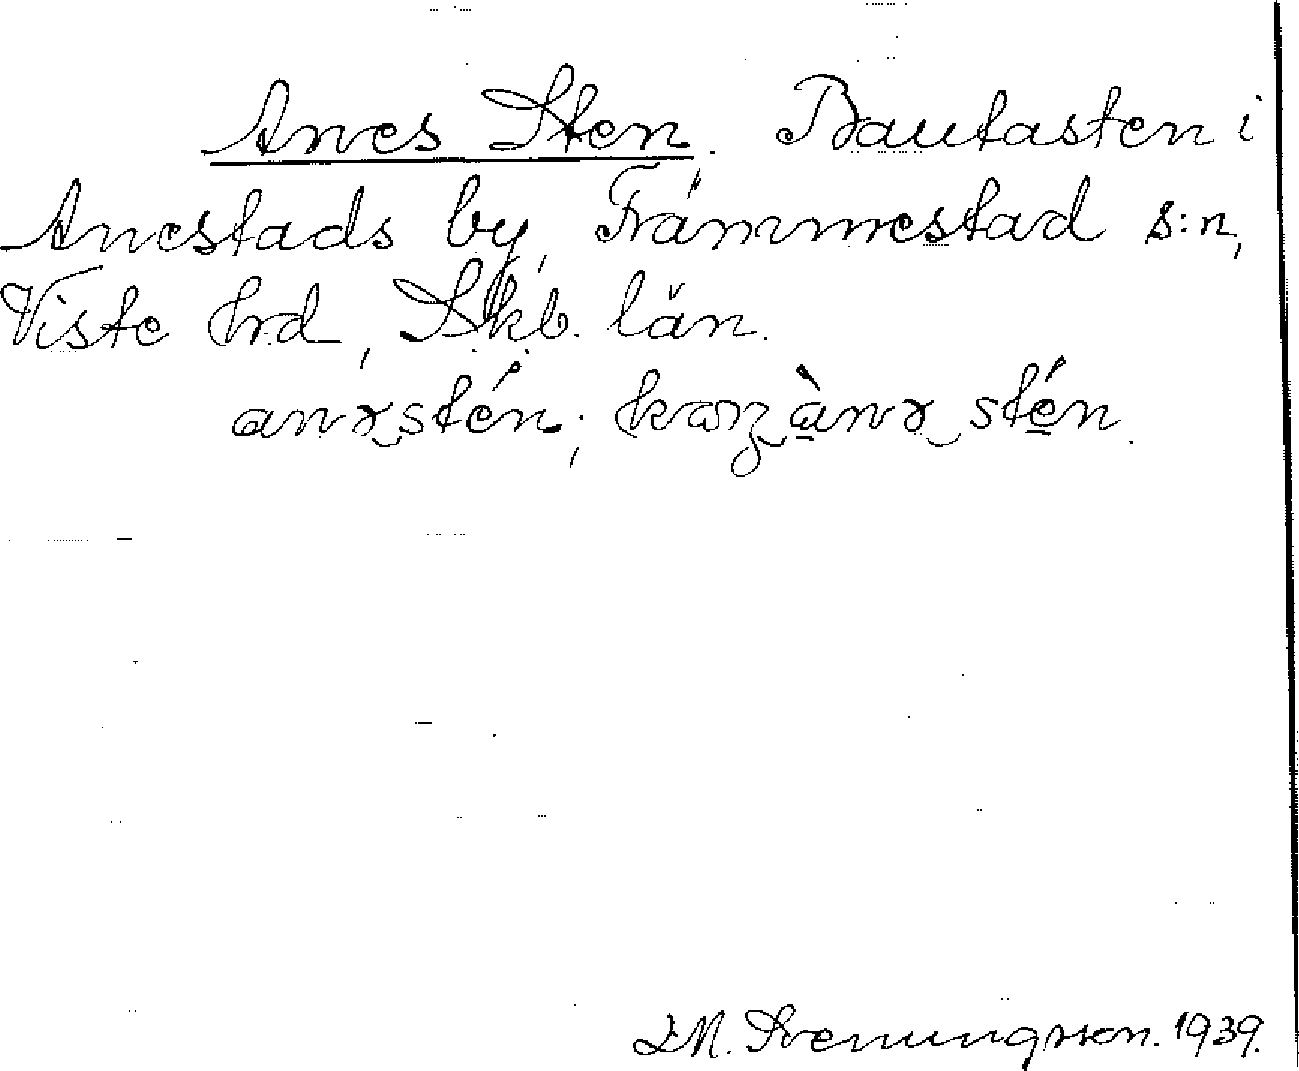 Anes Sten. Bautasten i
Anestads by, Främmestad s:n,
Viste hrd, Skb. län.
anɤstén; 
J.M. Svenungsson. 1939.